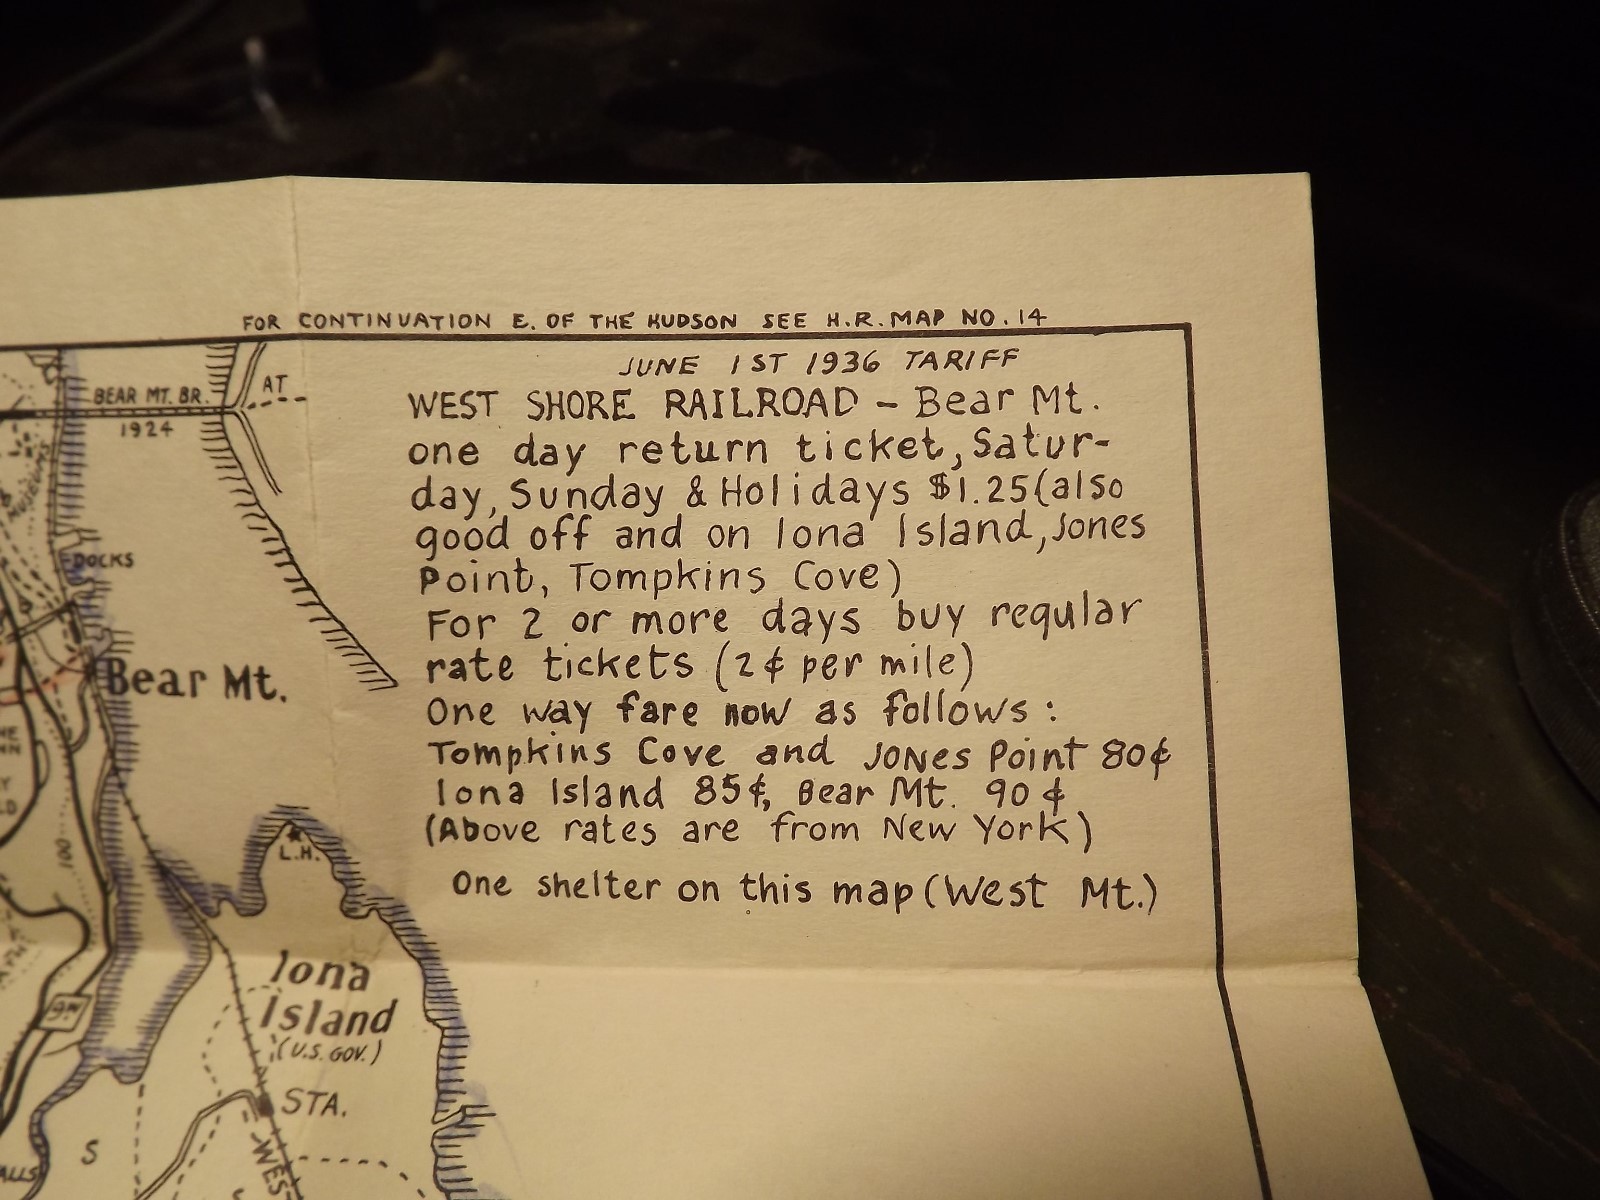 FOR CONTINUATION E. OF THE HUDSON SEE H.R. MAP NO. 14
JUNE 1ST 1936 TARIFF
WEST SHORE RAILROAD – Bear Mt.
one day return ticket, Satur-
day, Sunday & Holidays $1.25 (also
good off and on Iona Island, Jones
Point, Tompkins Cove)
For 2 or more days buy regular
rate tickets (2¢ per mile)
One way fare now as follows:
Tompkins Cove and JONES Point 80¢
Iona Island 85¢, Bear Mt. 90¢
(Above rates are from New York)
One shelter on this map (West Mt.)
BEAR MT. BR.
1924
AT
MUSEUMS
DOCKS
Bear Mt.
100
L.H.
Iona
Island
(U.S. GOV.)
9W
STA.
S
WES-